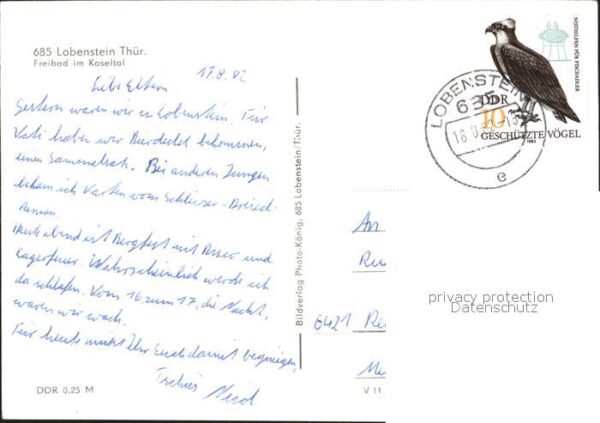 685 Lobenstein Thür.
Freibad im Koseltal
17.8.82
Liebe Eltern
Gestern waren wir in Lobenstein. Für
Vati haben wir Bierdeckel bekommen,
einen Sammelsatz. Bei anderen Jungen
bekam ich Karten vom Schleizer-Dreieck-
Rennen.
Heut abend ist Bergfest mit Disco und
Lagerfeuer. Wahrscheinlich werde ich
da schlafen. Vom 16. zum 17., die Nacht,
waren wir wach.
Für heute müßt Ihr Euch damit begnügen,
Tschüs
DDR 0,25 M
Bildverlag Photo-König, 685 Lobenstein/Thür.
NISTHILFEN FÜR FISCHADLER
DDR
10
GESCHÜTZTE VÖGEL
1982
LOBENSTEIN
685
e
An
6421
V 11
privacy protection
Datenschutz